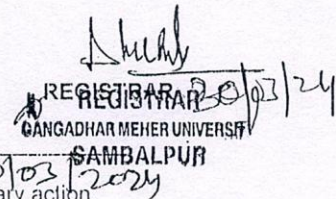 REGISTRAR 30/03/24
REGISTRAR
GANGADHAR MEHER UNIVERSIT
SAMBALPUR
/03/2024
ary action